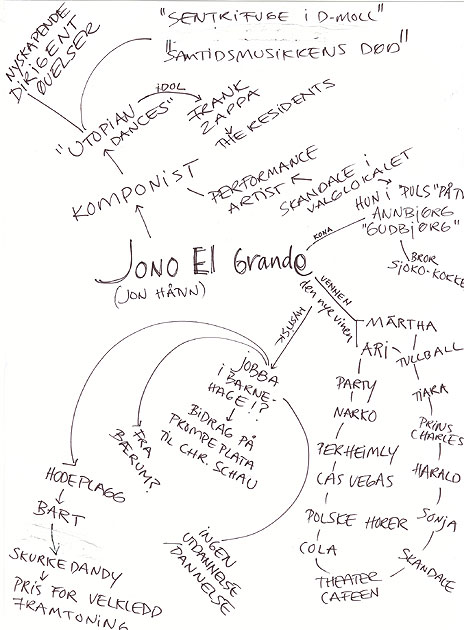 "SENTRIFUGE I D-MOLL"
"SAMTIDSMUSIKKENS DØD"
NYSKAPENDE
DIRIGENT
ØVELSER
"UTOPIAN
DANCES"
IDOL
FRANK
ZAPPA
THE RESIDENTS
KOMPONIST
PERFORMANCE
ARTIST
SKANDALE I
VALGLOKALET
KONA
HUN I "PULS" PÅ TV
ANNBJØRG
"GUDBJØRG"
BROR
SJOKO-KOKKE
JONO El Grande
(JON HÅTVN)
VENNEN
den nye vinen
MÄRTHA
ARI
TULLBALL
PARTY
NARKO
PERHEIMLY
CAS VEGAS
POLSKE HORER
COLA
THEATER
CAFEEN
TIARA
PRINS
CHARLES
HARALD
SONJA
SKANDALE
JOBBA
I BARNE-
HAGE!?
BIDRAG PÅ
PROMPEPLATA
TIL CHR. SCHAU
FRA
BÆRUM?
HODEPLAGG
BART
SKURKEDANDY
PRIS FOR VELKLEDD
FRAMTONING
INGEN
UTDANNELSE
DANNELSE